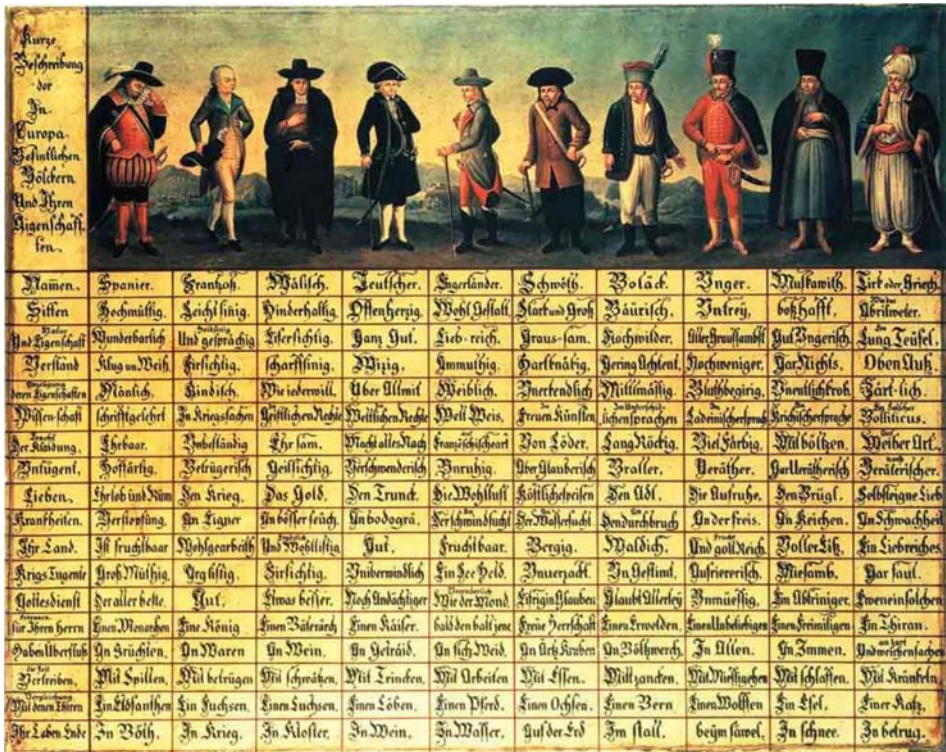 Kurze
Beschreibung
der
In
Europa
Befintlichen
Völckern
Und Ihren
Aigenschaff
ten.
Namen. Spanier. Frantzoß. Wälisch. Teutscher. Engerländer. Schwöth. Boläck. Unger. Muskawith. Tirk oder Griech.
Sitten Hochmüttig. Leichtsinig. Hinderhaltig. Offenherzig. Wohl Gestalt. Starck und Groß Bäurisch. Untrey. boßhafft. Abrilweter.
Und Eigenschaft Wunderbarlich Und gesprächig Eifersichtig. Ganz Gut. Lieb-reich. Graus-sam. Hochwilder. Aller Graussambst Gut Ungerisch. Lung Teüfel.
Verständ Klug un Weiß. Firsichtig. scharffsinig. Wizig. Ammuthig. Hartknätig. Gering Achtent. Nochweniger. Gar Nichts. Oben Auß.
Anzeügung deren Eigenschaften Mänlich. Kindisch. Wie iederwill. Über Allmit Weiblich. Unerkendlich Mittlmäsig. Bluthbegirig. Unentlichkrob. Zärt-lich.
Wissenschaft schrifftgelehrt In Kriegssachen Geistlichen Rechte Weltlichen Rechte Welt Weis. Freuen Künsten lichensprachen Ladeinischersprach Krichischersprache Bolliticus.
Der Klaidung. Ehrbaar. Unbeständig Ehrsam. Macht alles Nach Französischeart Von Löder. Lang Röckig. Viel Färbig. Mit bölzen. Weiber Art.
Untugent. Hoffärtig. Betrügerisch Geillsichtig. Verschwenderisch Unruhig. Aber Glauberisch Braller. Veräther. Gar Verätherisch Veräterischer.
Lieben. Ehrlob und Rüm Den Krieg. Das Gold. Den Trunck. Die Wohllust Köstlichespeisen Den Adl. Die Aufruhe. Den Brügl. Selbsteigne Lieb
Krankheiten. Verstopfung. An Eigner An bösser seüch. An bodogrä. Der schwindsucht Der Wassersucht Dendurchbruch An der freis. An Keichen. An Schwachheit
Ihr Land. Ist fruchtbaar Wohlgearbeith Und Wohllistig Gut. Fruchtbaar. Bergig. Waldich. Und gollt Reich. Voller Eiß. Ein Liebreiches
Krigs Tugente Groß Müthig. Arg listig. Firsichtig. Uniberwindlich Ein See Held. Unverzackt. Un Gestimt. Aufriererisch. Miesamb. Gar faul.
Gottesdienst Der aller beste. Gut. Etwas besser. Noch Andächtiger Wie der Mond. Eifrig in Glauben Glaubt Allerley Unmüessig. Ein Abtriniger. Ewen ein solchen
für Ihren herrn Einen Monarchen Eine König Einen Baterärch Einen Käiser. bald den balt jene Freüe Herrschaft Einen Erwelden. Einen Unbeliebigen Einen Freimiligen Ein Thiran.
Haben Überfluß An Früchten. An Waren An Wein. An Geträid. An fich Weid. An Ärtz Kruben An Böltzwerch. In Allen. An Immen. Und weichen sachen
Die Zeit Vertreiben. Mit Spillen. Mit betrügen Mit schwätzen. Mit Trincken. Mit Arbeiten Mit Essen. Mitt zancken. Mit Miessigehen Mit schlaffen. Mit Kränkeln
Vergleichung Mit denen Thiren Ein Elofanthen Ein Fuchsen. Einen Luchsen. Einen Löben. Einen Pferd. Einen Ochsen. Einen Bern Einen Wolffen Ein Esel. Einer Katz.
Ihr Leben Ende In Böth. In Krieg. In Kloster. In Wein. In Wasser. Auf der Erd Im stall. beym säwel. In schnee. In betrug.